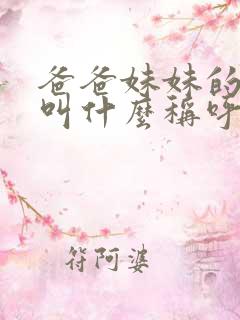 爸爸妹妹的
叫什麼稱呼
符阿婆